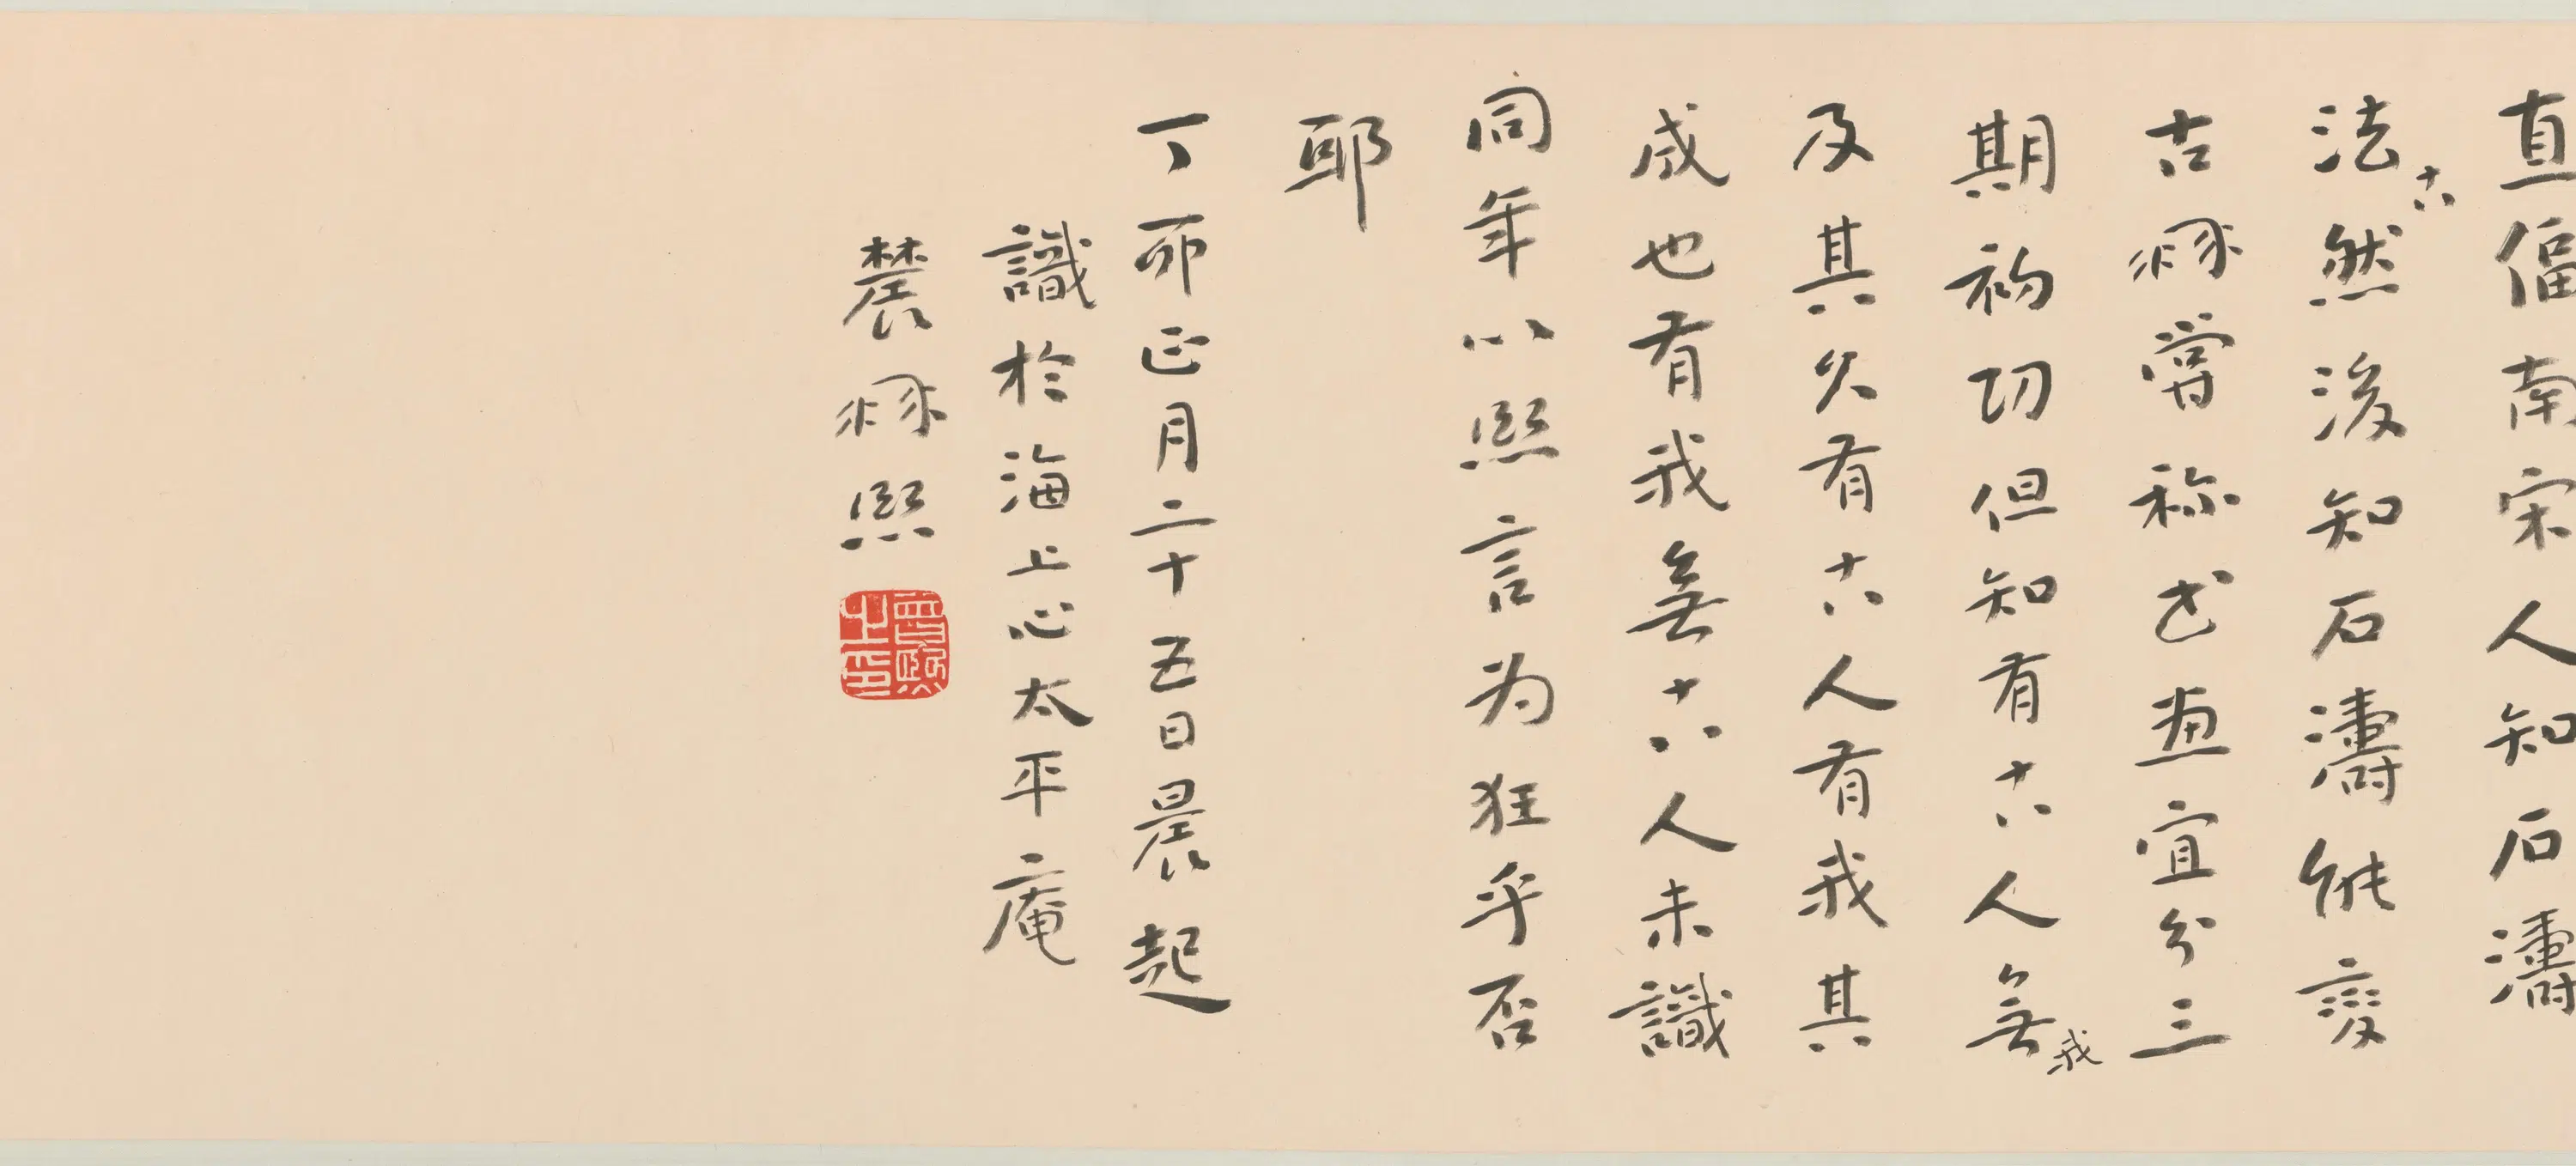 直偪南宋人知石濤
法古然後知石濤能變
古髯嘗称書畫宜分三
期初功但知有古人無我
及其久有古人有我其
成也有我無古人未識
同年以熙言为狂乎否
耶
丁卯正月二十五日晨起
識於海上心太平庵
農髯熙
曾熙之印